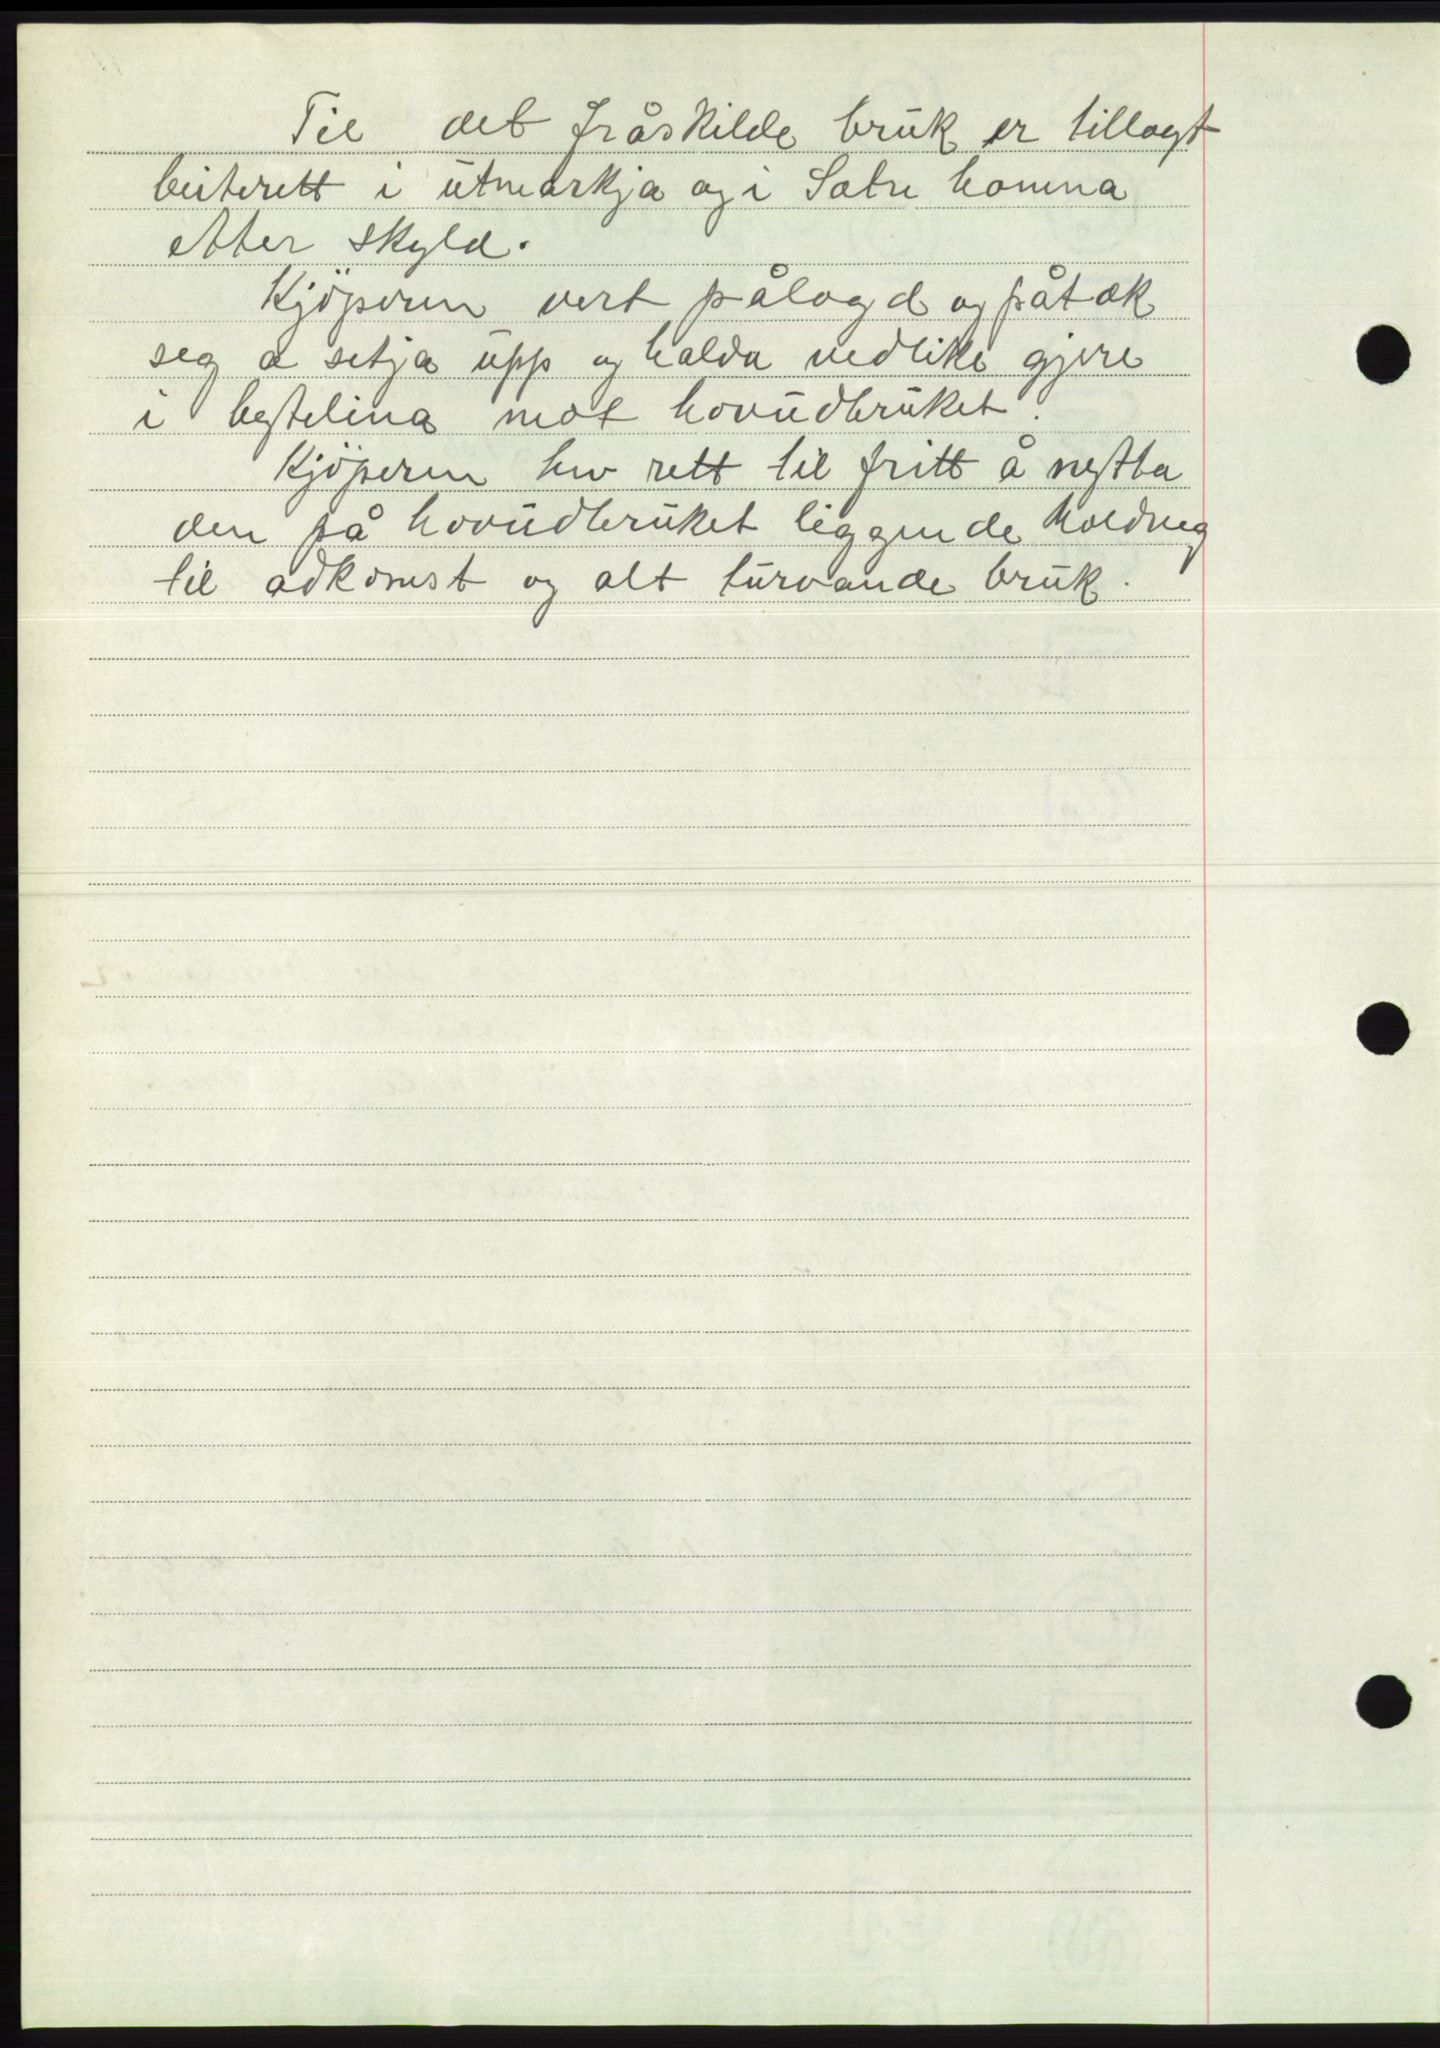 Til det fråskilde bruk er tillagt
beiterett i utmarkja og i Sætre hamna
etter skyld.
Kjöperen vert pålagd og påtek
seg å setja upp og halda vedlike gjere
i bytelina mot hovudbruket.
Kjöperen hev rett til fritt å nytta
den på hovudbruket liggende holdveg
til adkomst og alt turvande bruk.